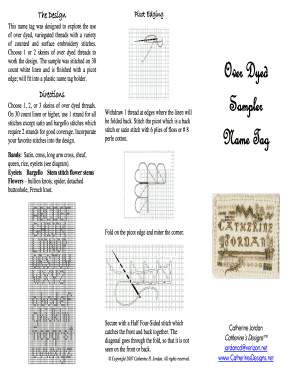 The Design
This name tag was designed to explore the use
of over dyed, variegated threads with a variety
of counted and surface embroidery stitches.
Choose 1 or 2 skeins of over dyed threads to
work the design. The sample was stitched on 30
count white linen and is finished with a picot
edge; will fit into a plastic name tag holder.
Directions
Choose 1, 2, or 3 skeins of over dyed threads.
On 30 count linen or higher, use 1 strand for all
stitches except satin and bargello stitches which
require 2 strands for good coverage. Incorporate
your favorite stitches into the design.
Bands: Satin, cross, long arm cross, sheaf,
queen, rice, eyelets (see diagram).
Eyelets Bargello Stem stitch flower stems
Flowers – bullion knots, spider, detached
buttonhole, French knot.
Picot Edging
Withdraw 1 thread at edges where the linen will
be folded back. Stitch the picot which is a back
stitch or satin stitch with 6 plies of floss or # 8
perle cotton.
Fold on the picot edge and miter the corner.
Secure with a Half Four-Sided stitch which
catches the front and back together. The
diagonal goes through the fold, so that it is not
seen on the front or back.
© Copyright 2007 Catherine H. Jordan. All rights reserved.
Over Dyed
Sampler
Name Tag
CATHERINE
JORDAN
Catherine Jordan
Catherine's Designs℠
jordancd@verizon.net
www.CatherineDesigns.net